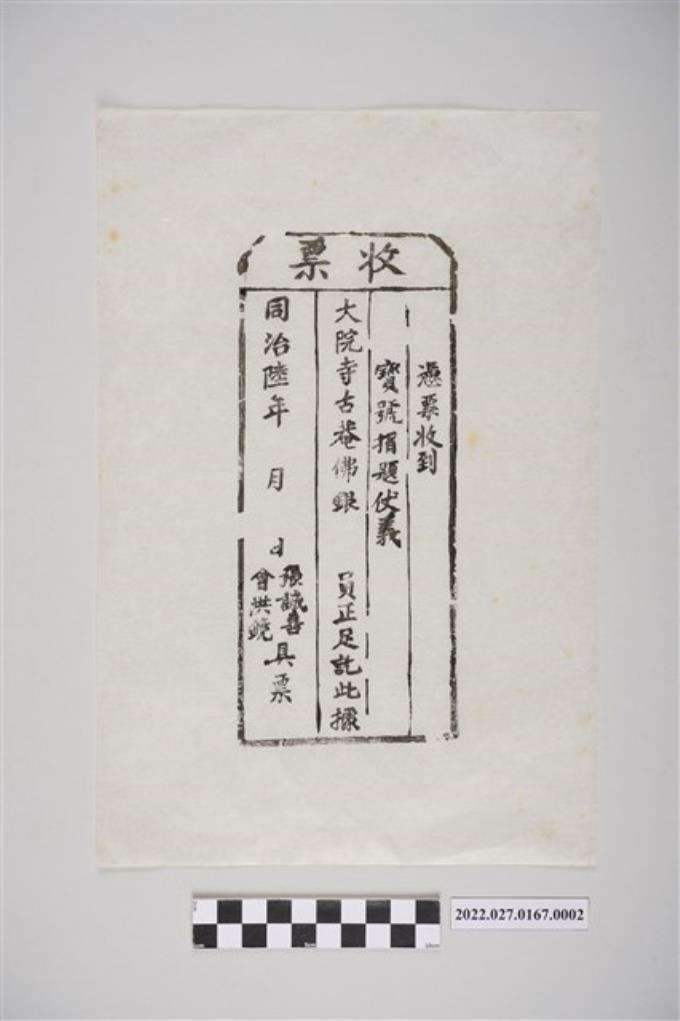 收票
憑票收到
寶號捐題仗義
大院寺古菴佛銀 員正足訖此據
同治陸年 月 日
張誠善
曾洪鏡
具票
2022.027.0167.0002